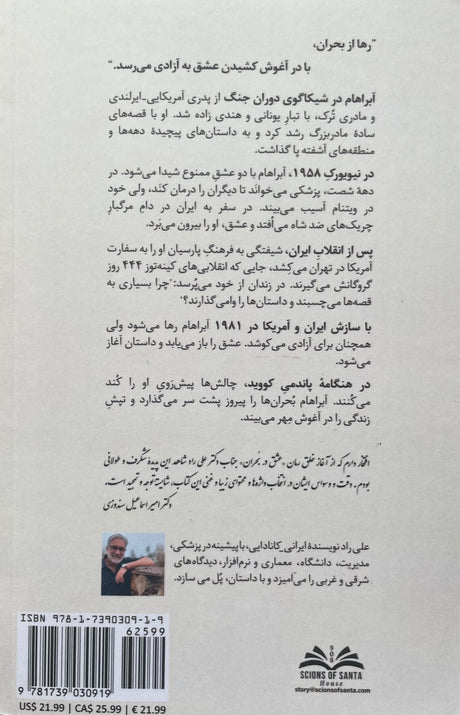 "رها از بحران،
با در آغوش کشیدن عشق به آزادی می‌رسد."
آبراهام در شیکاگوی دوران جنگ از پدری آمریکایی-ایرلندی
و مادری تُرک، با تبارِ یونانی و هندی زاده شد. او با قصه‌های
سادهٔ مادربزرگ رشد کرد و به داستان‌های پیچیدهٔ دهه‌ها و
منطقه‌های آشفته پا گذاشت.
در نیویورکِ ۱۹۵۸، آبراهام با دو عشقِ ممنوع شیدا می‌شود. در
دههٔ شصت، پزشکی می‌خوانَد تا دیگران را درمان کند، ولی خود
در ویتنام آسیب می‌بیند. در سفر به ایران در دامِ مرگبارِ
چریک‌های ضد شاه می‌اُفتد و عشق، او را بیرون می‌بَرد.
پس از انقلابِ ایران، شیفتگی به فرهنگِ پارسیان او را به سفارت
آمریکا در تهران می‌کِشد، جایی که انقلابی‌های کینه‌توز ۴۴۴ روز
گروگانش می‌گیرند. در زندان از خود می‌پُرسد: 'چرا بسیاری به
قصه‌ها می‌چسبند و داستان‌ها را وامی‌گذارند؟'
با سازش ایران و آمریکا در ۱۹۸۱ آبراهام رها می‌شود ولی
همچنان برای آزادی می‌کوشد. عشق را باز می‌یابد و داستان آغاز
می‌شود.
در هنگامهٔ پاندمیِ کووید، چالش‌ها پیش‌رَویِ او را کُند
می‌کُنند. آبراهام بُحران‌ها را پیروز پشت سر می‌گذارد و تپشِ
زندگی را در آغوش مِهر می‌بیند.
افتخار دارم که از آغاز خلق رمان «عشق در بُحران»، جناب دکتر علی راد شاهد این پدیدهٔ شگرف و طولانی
بودم. دقت و وسواس ایشان در انتخاب واژه‌ها و محتوای زیبا و غنی این کتاب، شایستهٔ توجه و تمجید است.
دکتر امیر اسماعیل سندوزی
علی راد نویسندهٔ ایرانی_کانادایی، با پیشینه در پزشکی،
مدیریت، دانشگاه، معماری و نرم‌افزار، دیدگاه‌های
شرقی و غربی را می‌آمیزد و با داستان، پُل می سازد.
ISBN 978-1-7390309-1-9
62599
9 781739 030919
US$ 21.99 | CA$ 25.99 | € 21.99
SOS
SCIONS OF SANTA
House
story@scionsofsanta.com